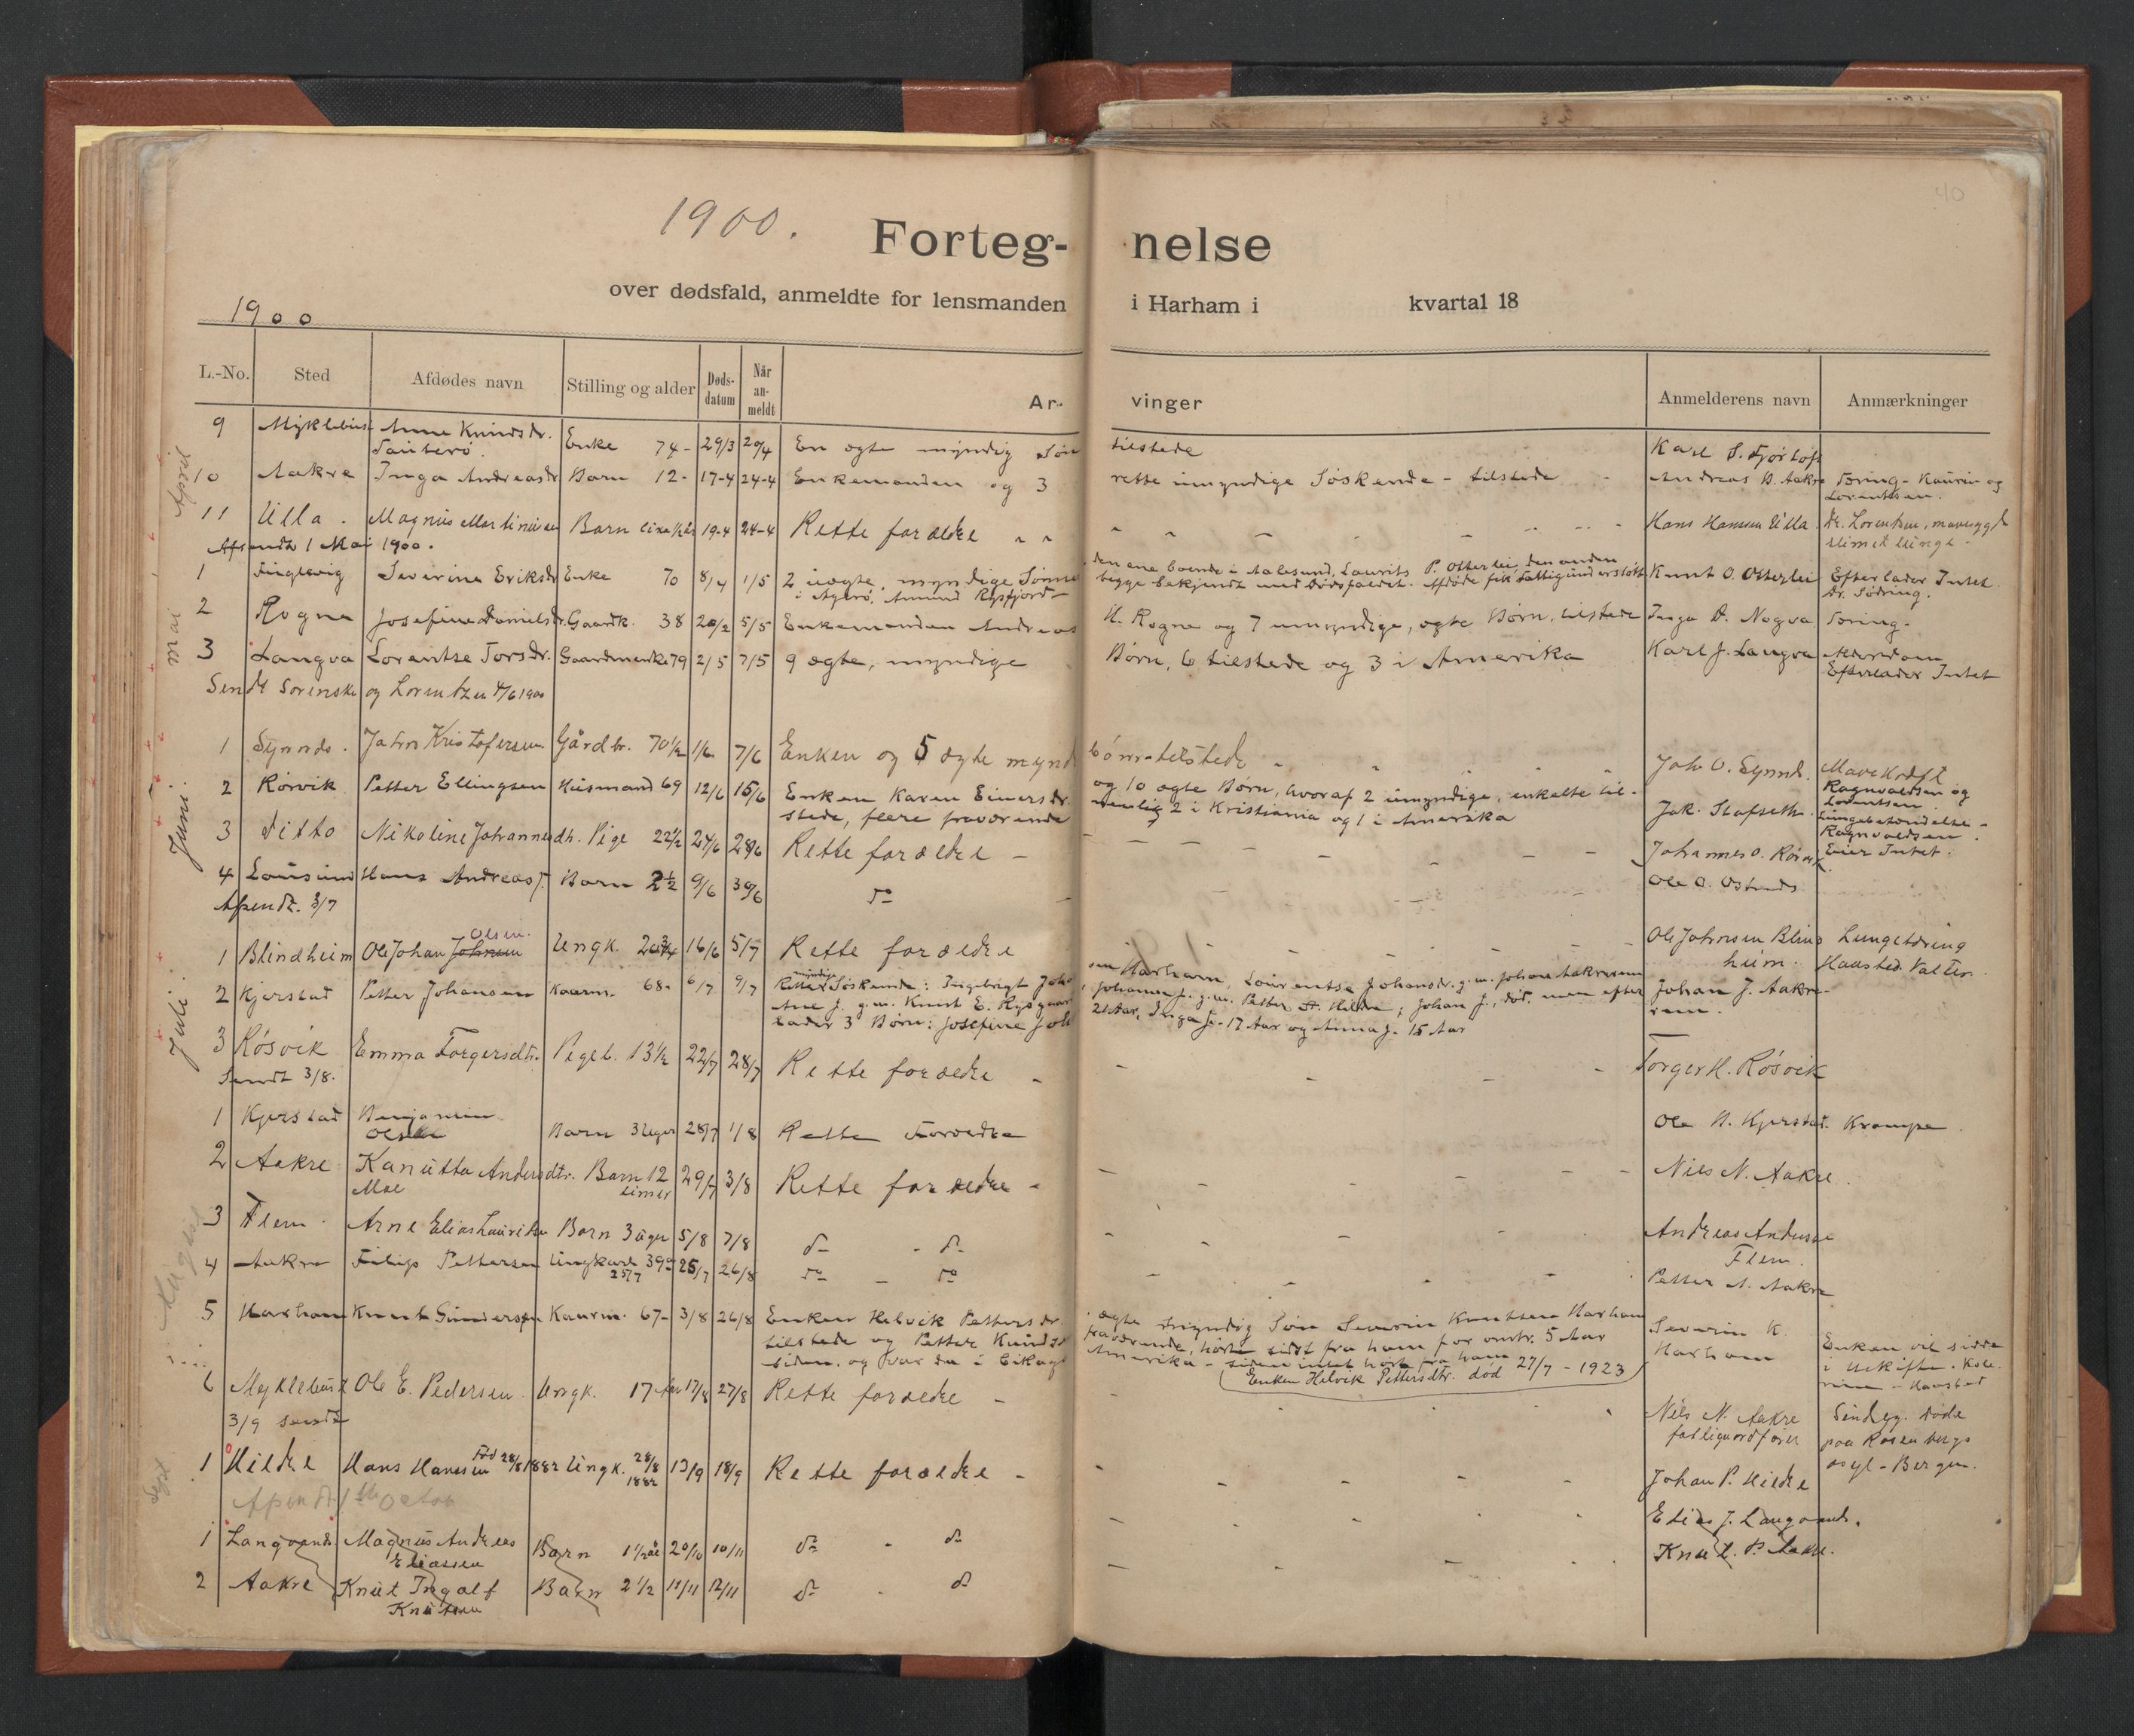 40
1900.
Forteg- nelse
over dødsfald, anmeldte for lensmanden i Harham i kvartal 18
1900
L.-No. Sted Afdødes navn Stilling og alder Døds-datum Når an-meldt Ar- vinger Anmelderens navn Anmærkninger
April
9 Myklebust Anne Knutsdr. Enke 74- 29/3 20/4 En ægte myndig Søn tilstede Karl S. Fjørtoft
10 Aakre Inga Andreasdr Barn 12- 17-4 24-4 Enkemanden og 3 rette umyndige Søskende - tilstede Andreas N. Aakre Tæring - Kaurin og
Lorentsen.
11 Ulla . Magnus Martinusen Barn 19-4 24-4 Rette forældre " " Hans Hansen Ulla Dr. Lorentsen, mavesygd
Afsendt 1 Mai 1900.
mai
1 Severine Eriksdr Enke 70 8/4 1/5 2 uægte, myndige Sønner den ene boende i Aalesund, Laurits P. Otterlei, den anden Knut O. Otterlei Efterlader Intet
begge bekjendt med Dødsfaldet. Afdøde fik Fattigunderstøtt.
Dr. Sødring.
2 Rogne Josefine Danielsdr. Gaardk. 38 20/2 5/5 Enkemanden Andreas H. Rogne og 7 umyndige, ægte Børn, tilstede Inga D. Nogva Tæring-
3 Langva Lorentse Torsdr. Gaardmenke 79 2/5 7/5 9 ægte, myndige Børn, 6 tilstede og 3 i Amerika Karl J. Langva Alderdom
Efterlader Intet
Sendt Sorenske og Lorentzen 4/6 1900
Juni:
1 Synnes . Jahn Kristofersen. Gårdbr. 70½ 1/6 7/6 Enken og 5 ægte mynd börn-tilstede Joh O. Synnes. Mavekræft
2 Rørvik Petter Ellingsen Husmand 69 12/6 15/6 Enken Karen Einersdr. og 10 ægte Børn, hvoraf 2 umyndige, enkelte til- Jak. Stafseth. Ragnvaldsen og
Lorentsen.
stede, flere fraværende nemlig 2 i Kristiania og 1 i Amerika
3 Ditto Nikoline Johannesdtr. Pige 22½ 24/6 28/6 Rette forældre - Johannes O. Rørvik Lungebetændelse -
Ragnvaldsen.
Eier Intet.
4 Lausund Hans Andreas J. Barn 2½ 9/6 30/6 do Ole O. Østnes
Afsendt. 3/7
Juli:
1 Blindheim Ole Johan Johnsen Olsen. Ungk. 20¾ 16/6 5/7 Rette forældre Ole Johnsen Blind Lungetæring
heim. Haasted. Valter.
2 Kjerstad Petter Johansen Kaarm. 68- 6/7 9/7 Rette myndige Søskende: Ingebrigt Johan sen Harham, Laurentse Johansdr. g.m. Johan Aakre Johan J. Aakre-
Ane J. g.m. Knut E. Rysgaard Johanna J. g.m. Petter A. Hildre; Johan J., død, men efter
lader 3 Børn: Josefine Joh 21 Aar, Inga J. 17 Aar og Anna J. 15 Aar
3 Røsvik Emma Torgersdtr. Pigeb. 13½ 22/7 28/7 Rette forældre - Torger K. Røsvik
Sendt 3/8.
August
1 Kjerstad Benjamin
Olsen Barn 3 Uger 28/7 1/8 Rette Forældre Ole N. Kjerstad. Krampe
2 Aakre Kanutta Andersdtr. Barn 12
timer 29/7 3/8 Rette forældre - Nils N. Aakre.
Moe
3 Flem . Arne Elias Lauritsen Barn 3 uger 5/8 7/8 do - do Andreas Anderse
Flem.
4 Aakre Filip Pettersen Ungkarl 39 25/7 26/8 do - do Petter N. Aakre
5 Harham Knut Gundersen Kaarm. 67- 3/8 26/8 Enken Helvik Pettersdr. ægte myndig Søn Severin Knutsen Harham Severin K.
Harham
tilstede og Petter Knuds fraværende, hørte sidst fra ham for omtr. 5 Aar
siden, og var da i Cikago Amerika - siden intet hørt fra ham
Enken Helvik Pettersdtr. død 27/7 - 1923
Enken vil sidde
i Uskifte.
6 Myklebust Ole E. Pedersen. Ungk. 17 Aar 17/8 27/8 Rette forældre - Nils N. Aakre
fattigordfører Sindsyg. Døde
paa Rosenbergs
asyl - Bergen.
3/9 sendt
Sept
1 Hildre Hans Hansen Fød 28/8 1882 Ungk. 28/8
1882 13/9 18/9 Rette forældre - Johan P. Hildre
Afsendt 1ste Octob
1 Langvands Magnus Andreas
Eliassen Barn 1½ år 20/10 10/11 do - do Elias J. Langvands.
2 Aakre Knut Ingolf
Knutsen Barn 2½ 11/11 12/11 do - do Knut P. Aakre.